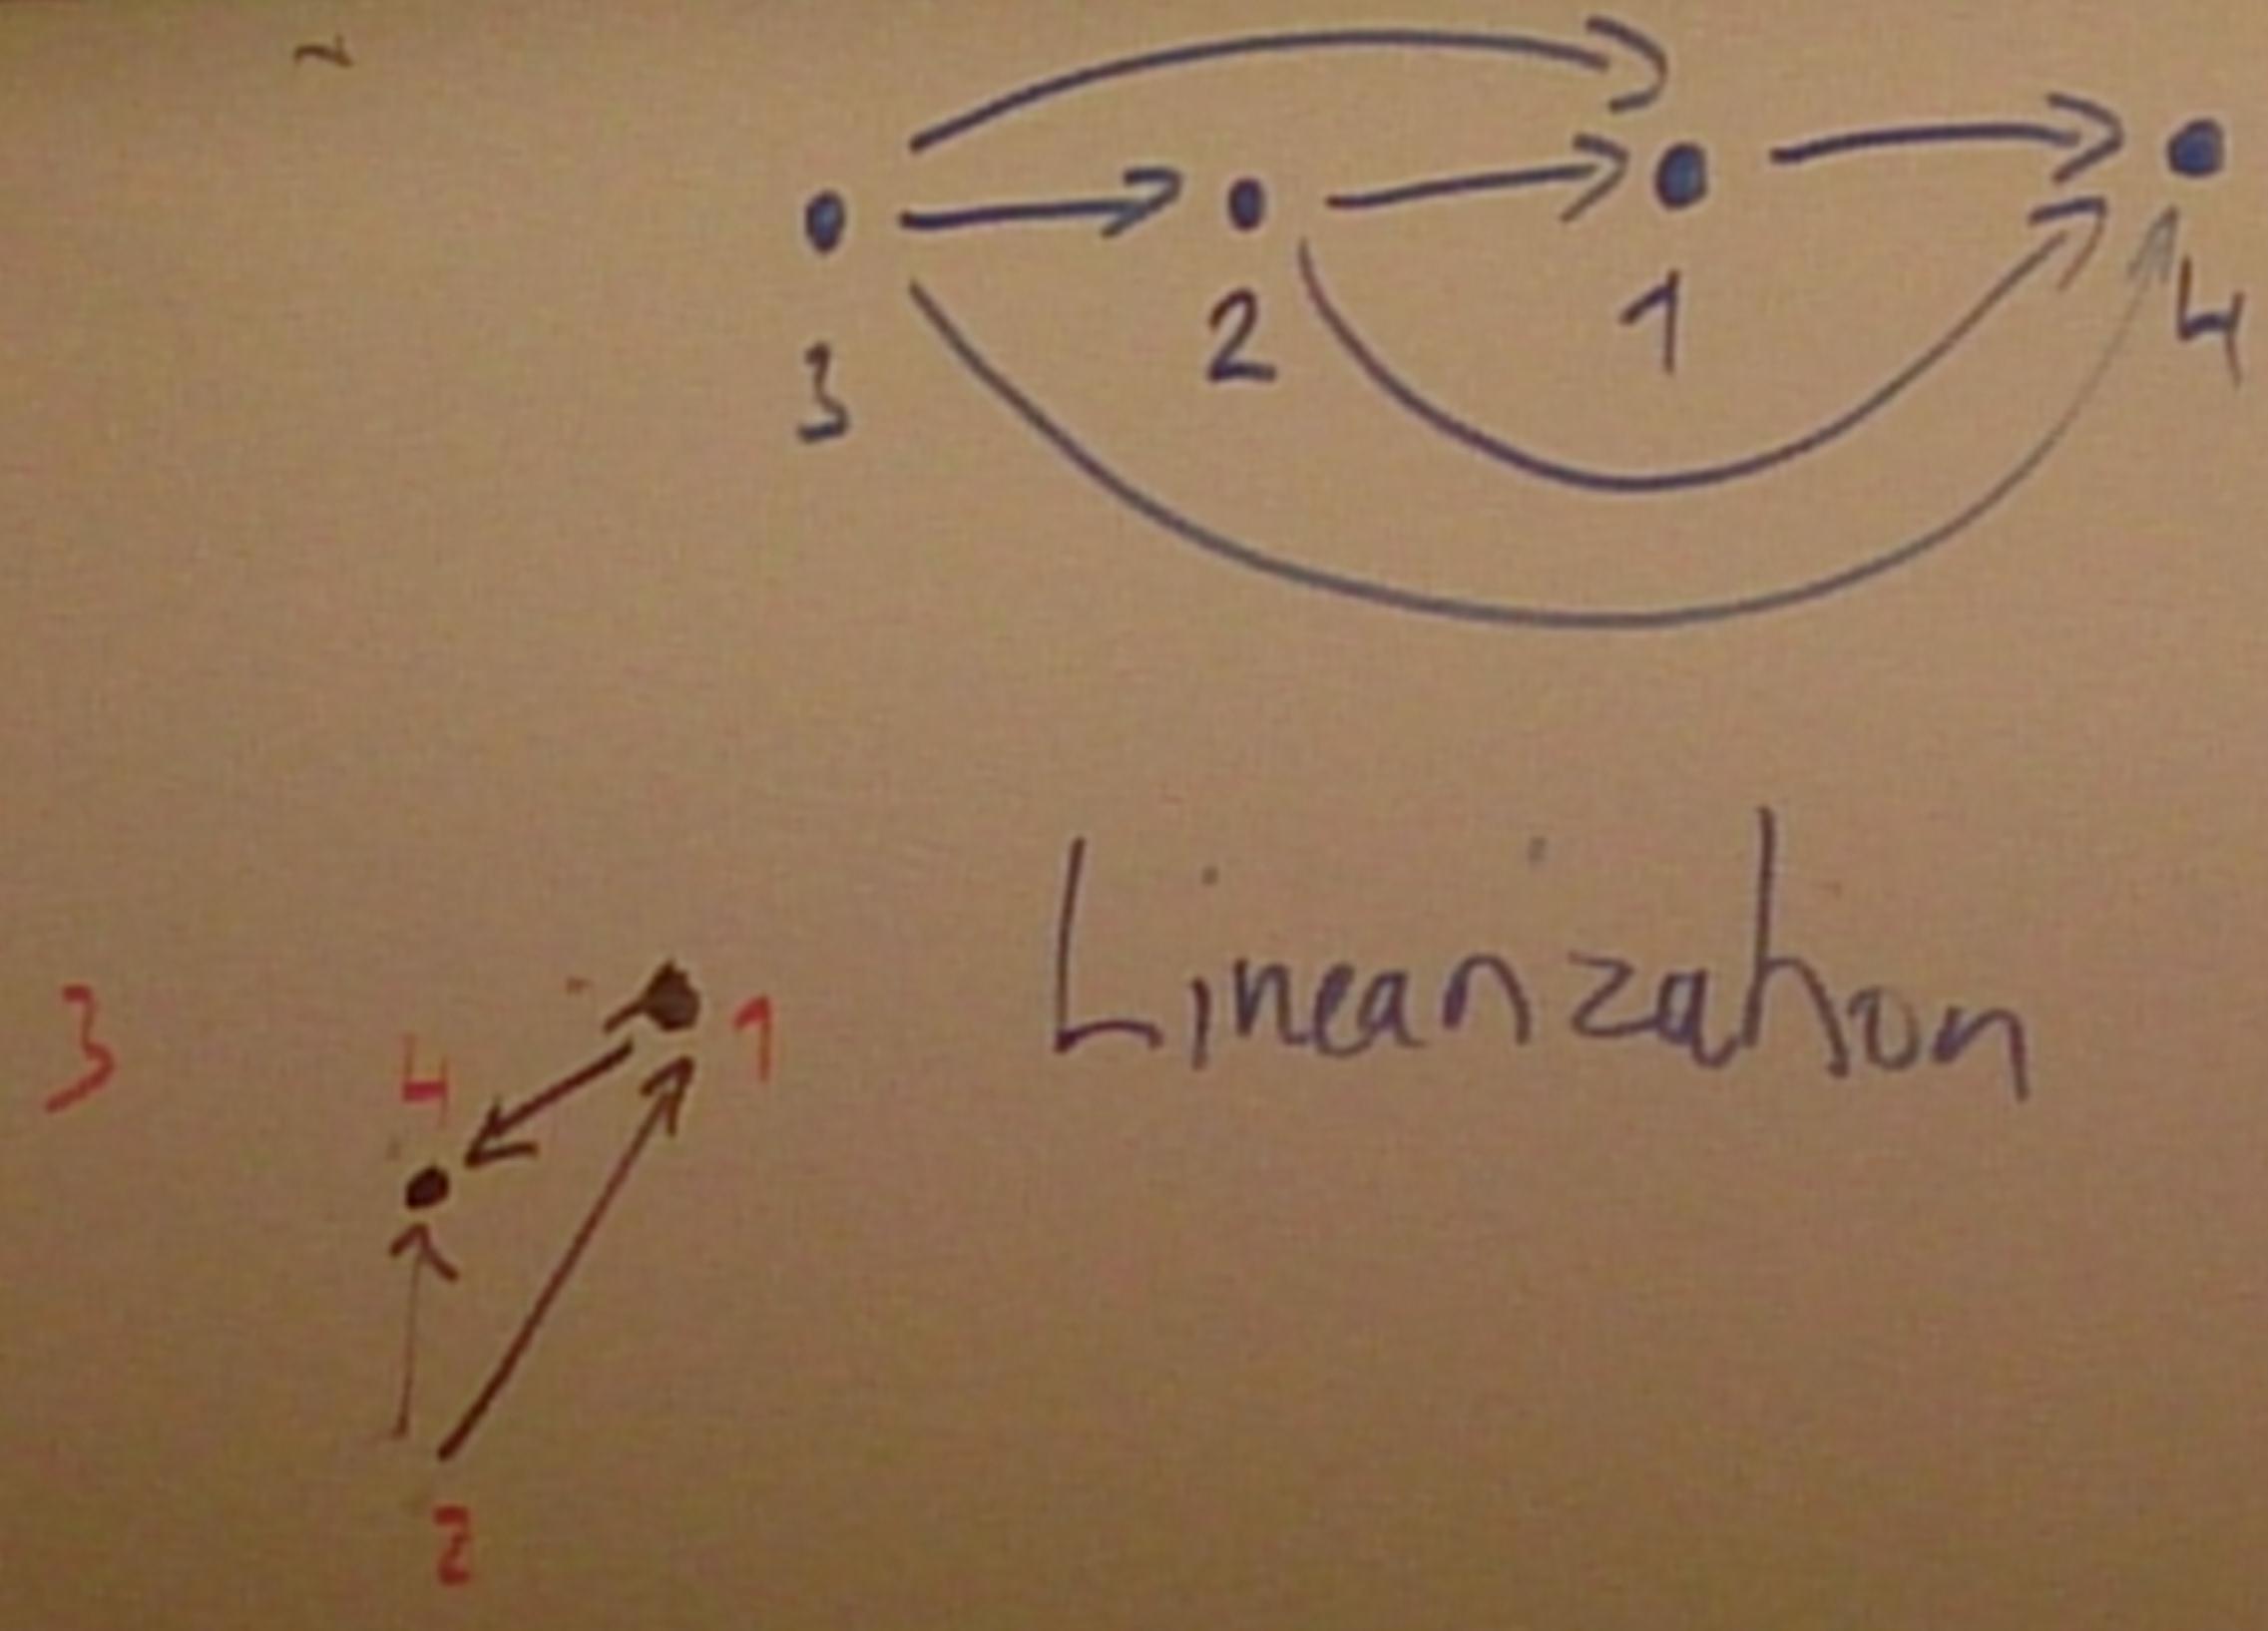 3 2 1 4
Linearization
3 4 1
2